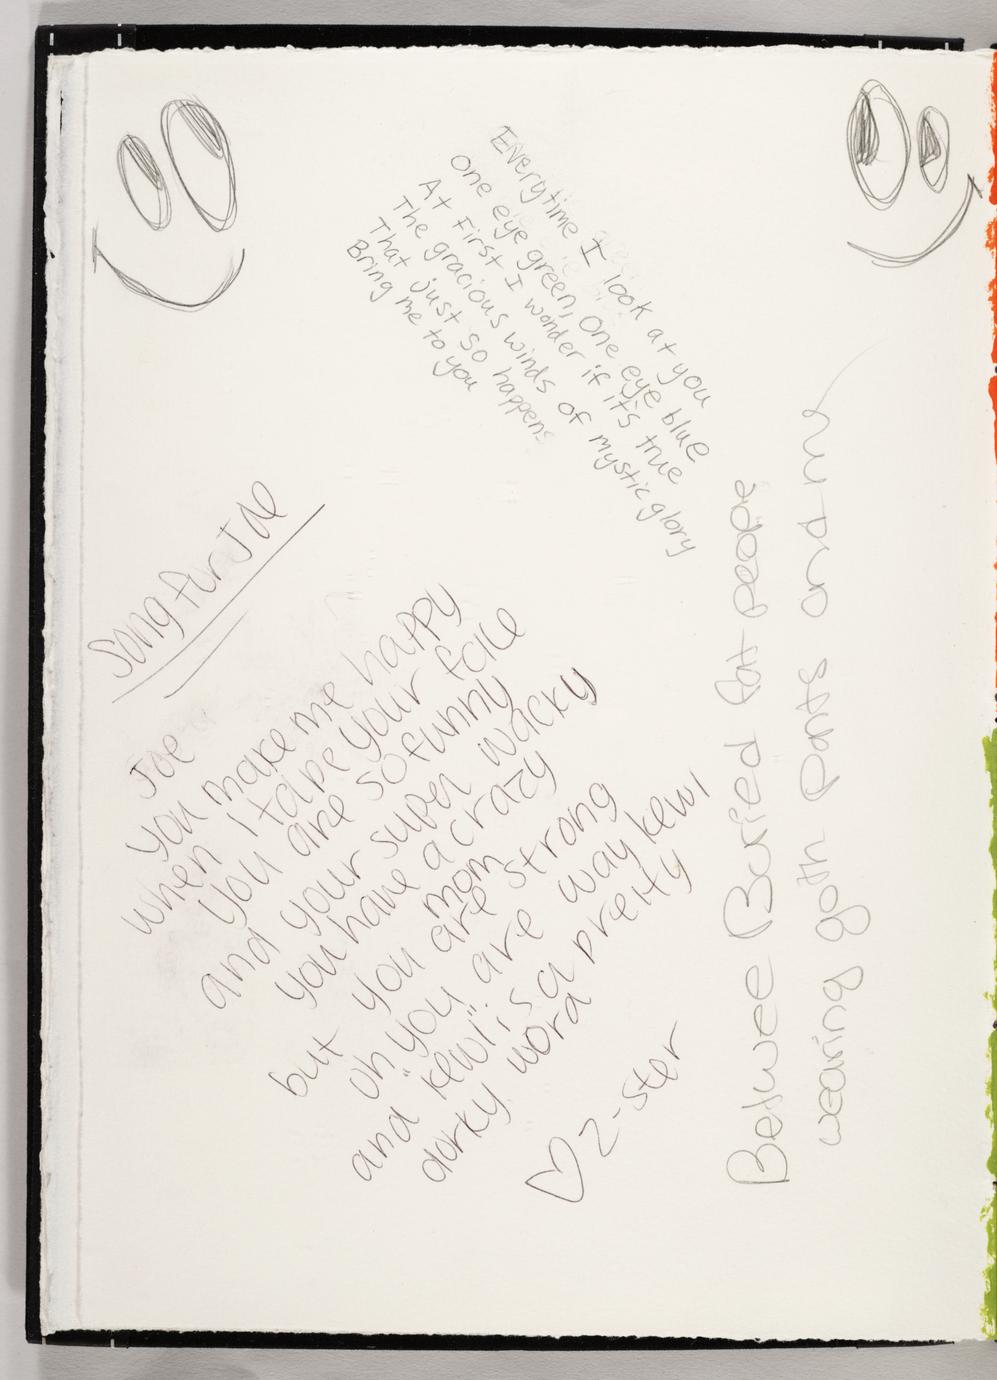 Everytime I look at you
One eye green, One eye blue
At First I wonder if it's true
The gracious winds of mystic glory
That just so happens
Bring me to you
Song for Joe
Joe
you make me happy
when I tape your face
you are so funny
and your super wacky
you have a crazy
mom
but you are strong
oh you are way kewl
and "kewl" is a pretty
dorky word
♡ Z-ster
Betwee Buried fat people
wearing goth pants and